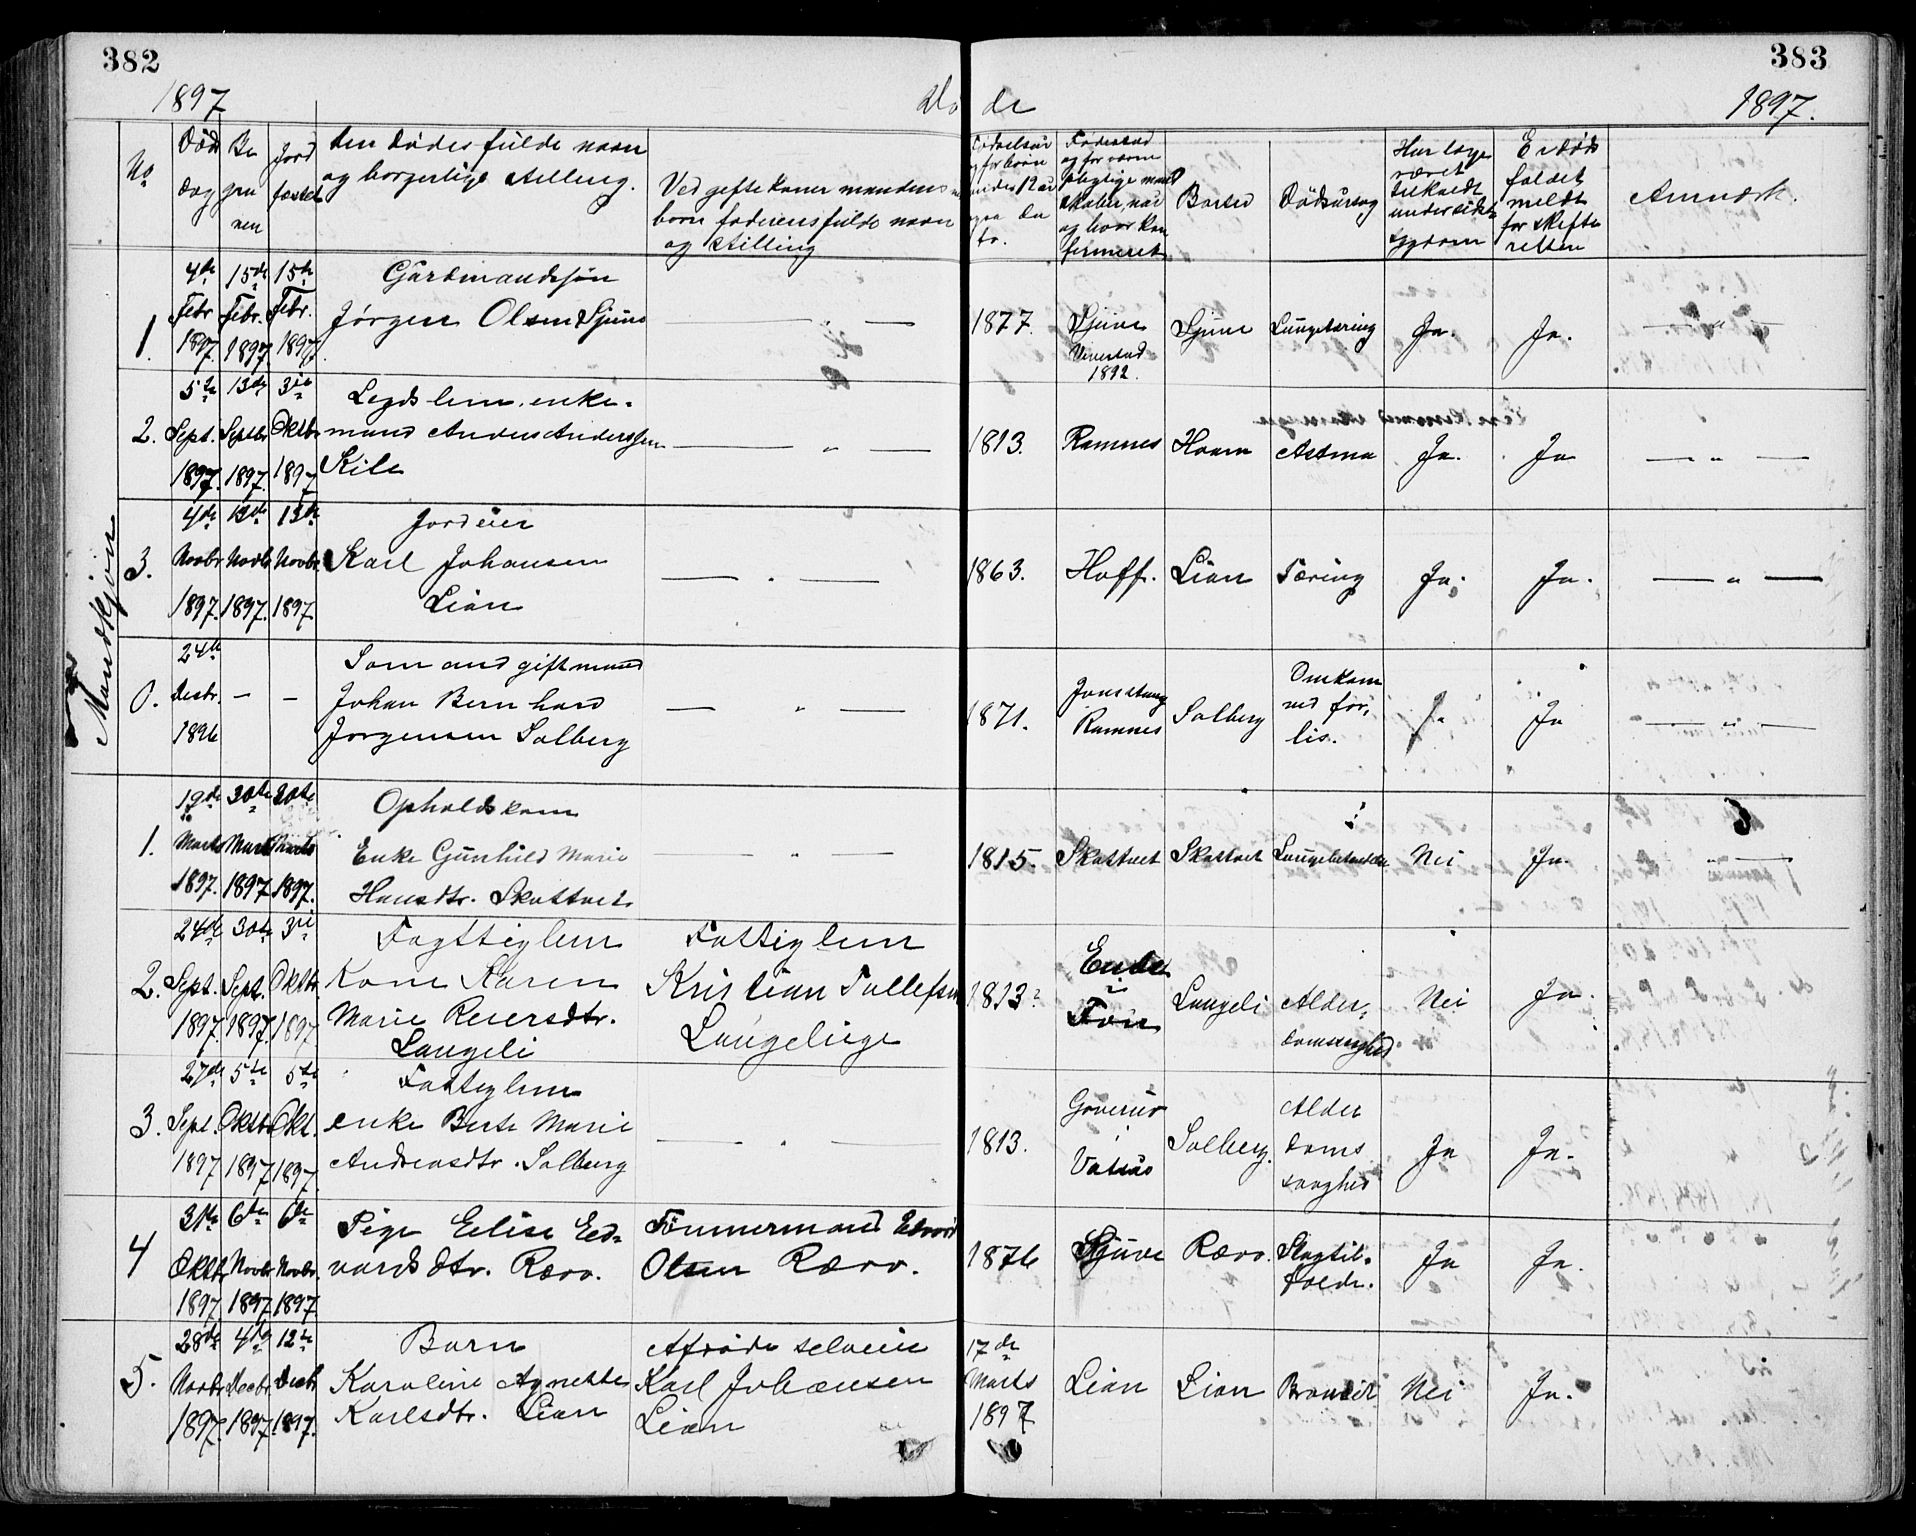 382
383
1897
Dø de
1897.
No
Døds dag
Be gra nen
Jord fæstet
den dødes fulde navn
og borgerlige stilling.
Ved gifte koner mandens
børn faderens fulde navn
og stilling
Fødselsår
og for børn
under 12 år
Fødested
og for
Bosted
Dødsårsag
Har læge
været
tilkaldt
under sidste
sygdom
Er døds
faldet
meldt
for skifte
retten
Anmærk.
Mandkjøn
1.
4de Febr 1897
15de Febr. 1897
15de Febr. 1897
Gårdmandssøn
Jørgen Olsen Sjuve
— " —
1877.
Sjuve
Vivestad
1892.
Sjuve
Lungetæring
Ja.
Ja.
— " —
2.
5te Sept. 1897
13de Septbr 1897.
3die Oktbr 1897
Legdslem, enke-
mand Anders Anderssen
Kile
— " —
1813.
Ramnes
Hvam
Astma
Ja.
Ja
— " —
3.
4de Novbr 1897.
13de Novbr 1897.
13de Novbr. 1897
Jordeier
Karl Johansen
Lian
— " —
1863.
Hoff.
Lian
Tæring
Ja.
Ja.
— " —
0.
24de Desbr. 1896
—
—
Sømand gift mand
Johan Bernhard
Jørgensen Solberg
— " —
1871.
Ramnes
Solberg
Omkom
ved for-
lis.
Ja
— " —
1.
19de Marts 1897.
30te Marts 1897
30te Marts 1897.
Opholdskone
Enke Gunhild Marie
Hansdtr. Skottvet
— " —
1815.
Skottvet
Skottvet
Lungebetændelse
Nei
Ja
2.
24de Sept. 1897.
30te Sept. 1897
3die Oktbr. 1897
Fagttiglem
Kone Karen
Marie Reiersdtr.
Langeli
Fattiglem
Kristian Tollefsen
Langelieie
1813
Langeli
Alder-
domssvaghed
Nei
Ja.
3.
27de Sept. 1897
5te Oktbr 1897
5te Okt. 1897.
Fattiglem
enke Berte Marie
Andreasdtr. Solberg
— " —
1813.
Vatnås
Solberg.
Alder
doms
svaghed
Ja
Ja.
4
31te Oktbr 1897
6te Novbr 1897
6te Novbr. 1897
Pige Eelise Eed-
vardsdtr. Rævo.
Tømmermand Edvard
Olsen Rævo.
1876
Sjuve
Rævo.
Slagtil-
fælde.
Ja
Ja.
5.
28de Novbr 1897.
4de Decbr. 1897
12te Decbr 1897.
Barn
Karoline Agnethe
Karlsdtr. Lian
Afdøde selveier
Karl Johansen
Lian
17de
Marts
1897
Lian
Lian
Bronkit
Nei
Ja.